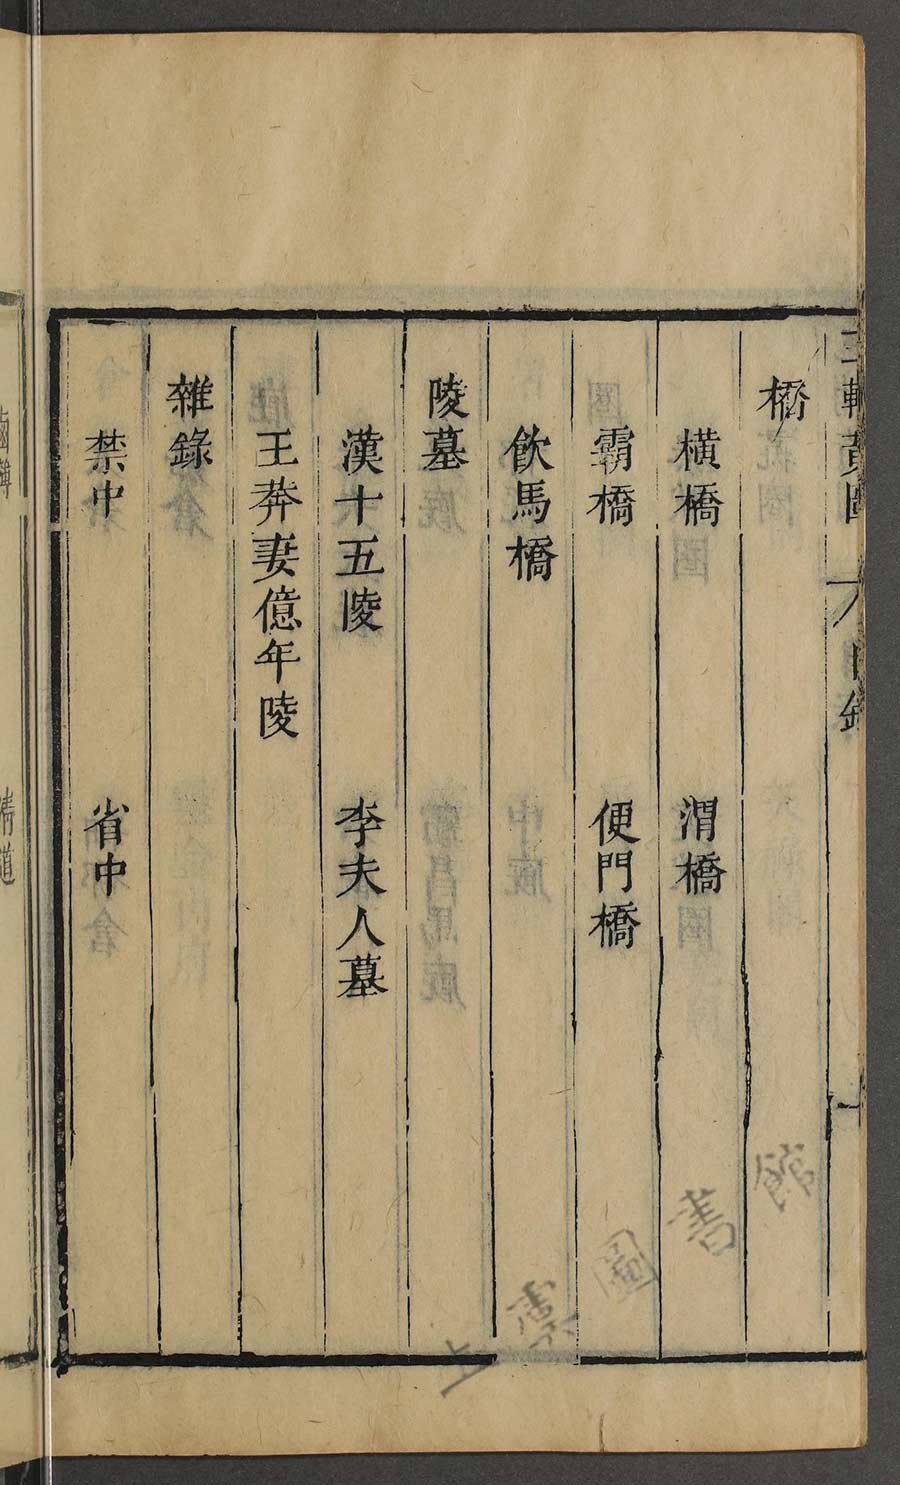 三輔黃圖 目錄
橋
橫橋 渭橋
霸橋 便門橋
飲馬橋
陵墓
漢十五陵 李夫人墓
王莽妻億年陵
雜錄
禁中 省中
清道
上虞圖書館